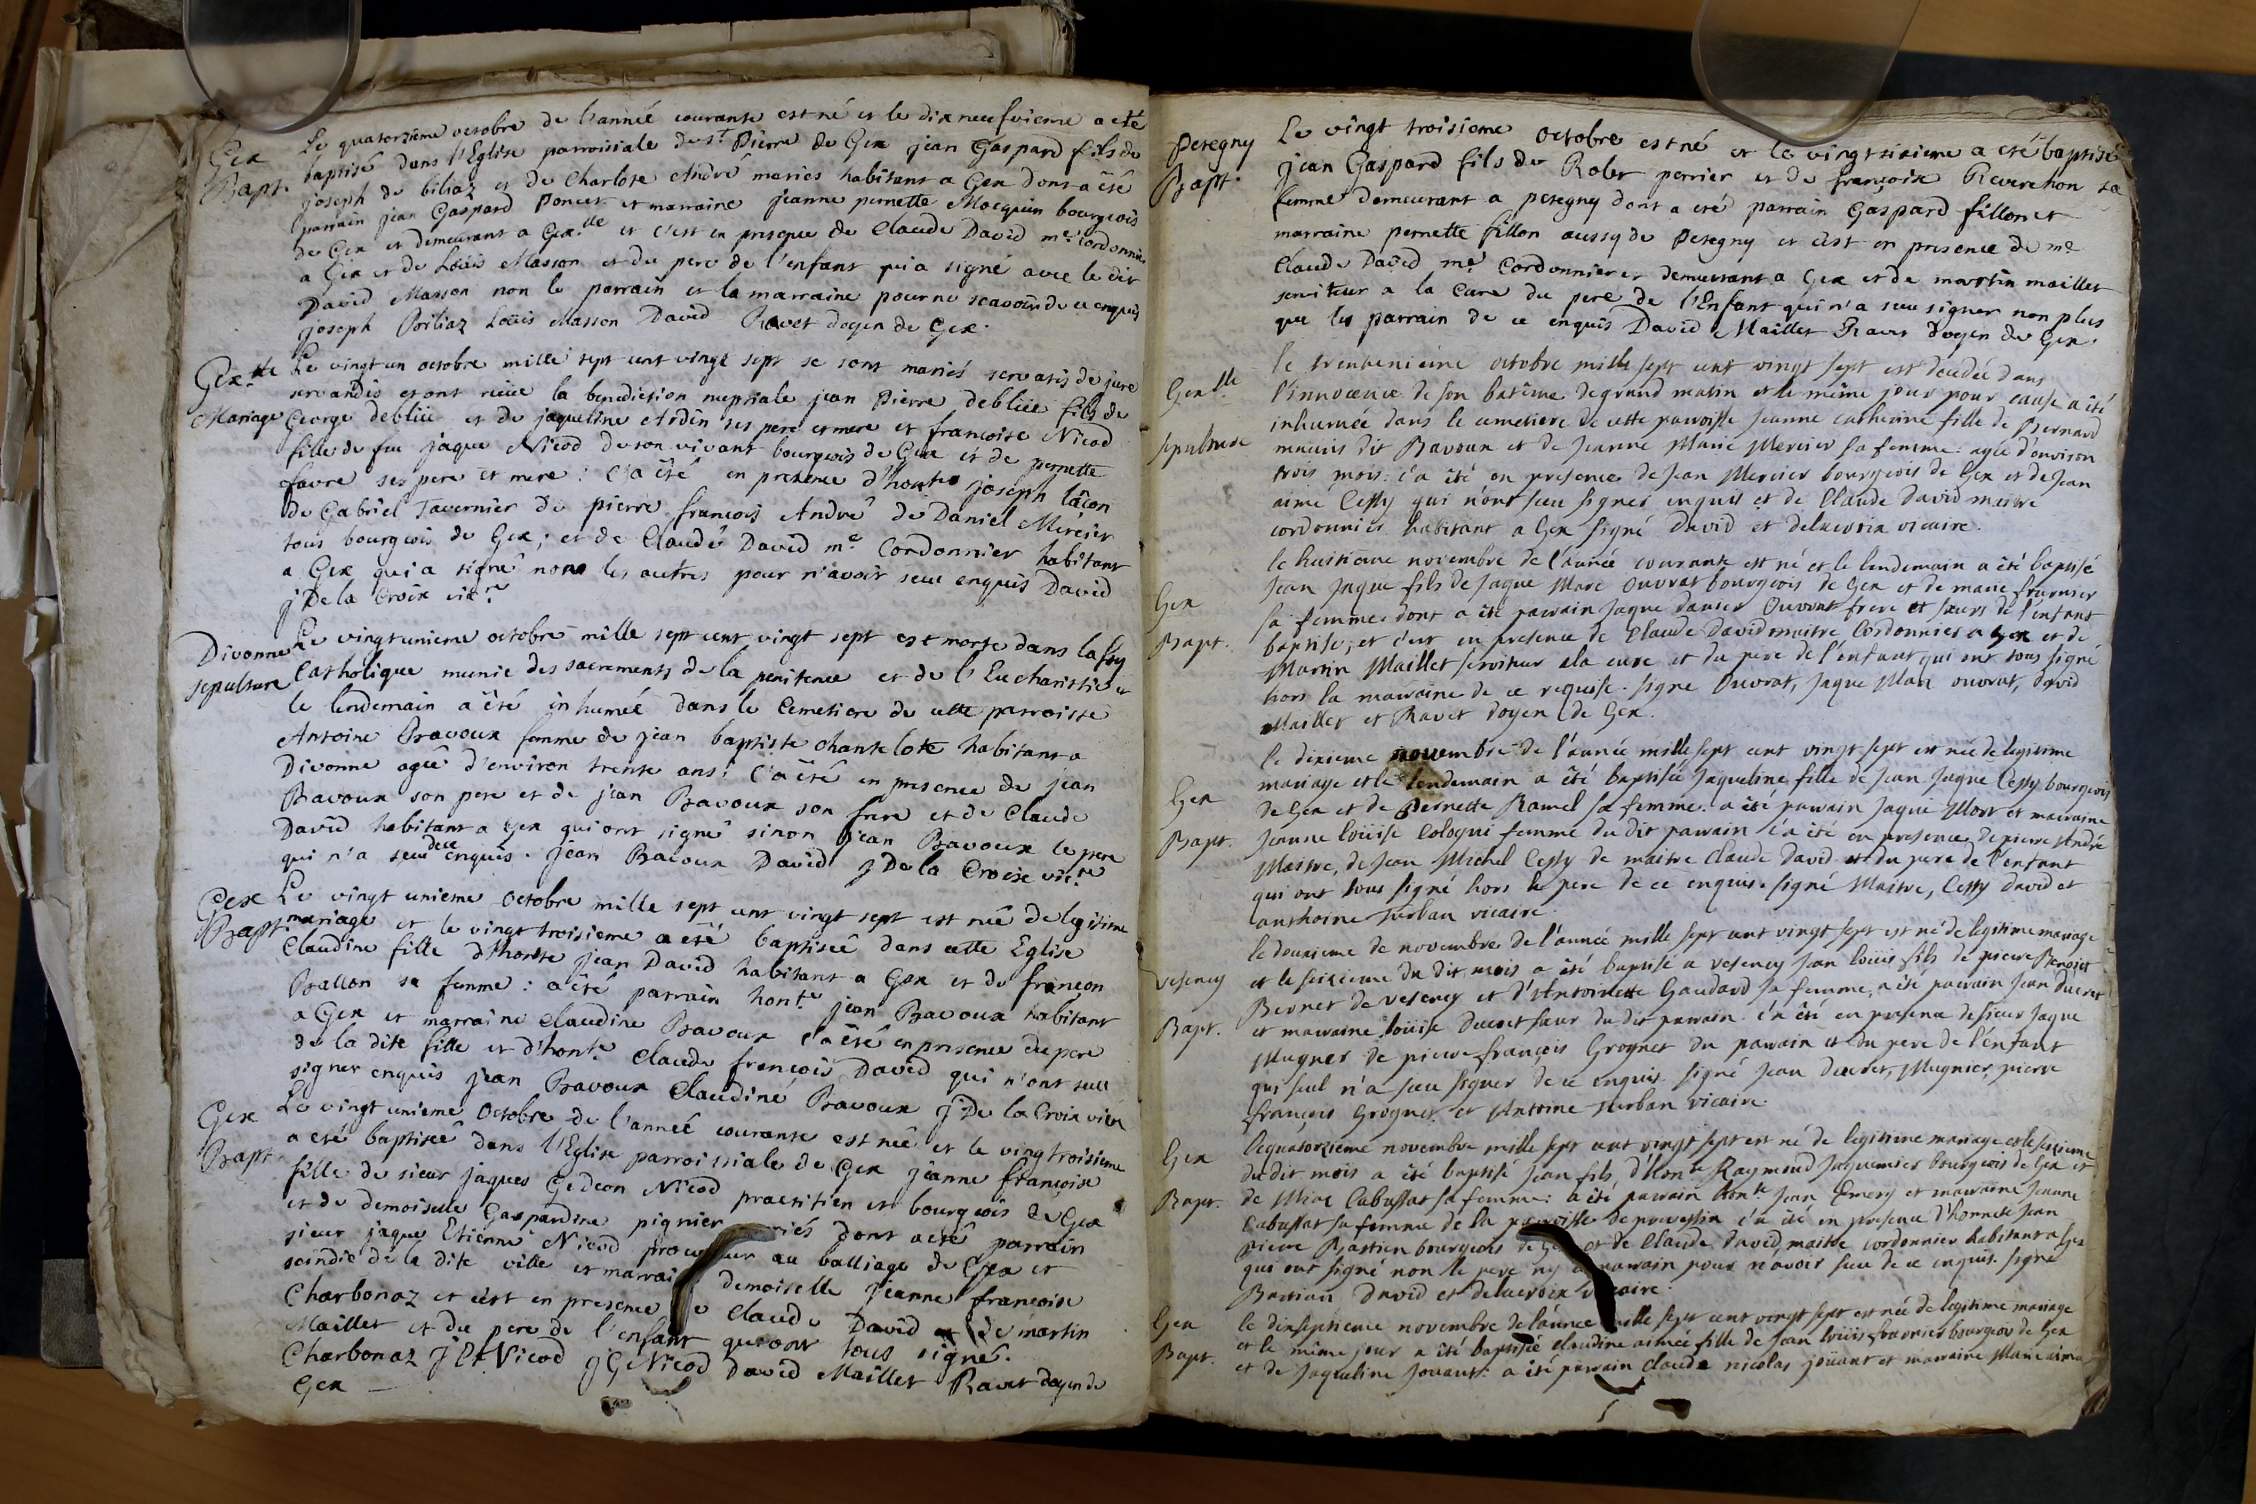 Gex
Bapt.
Le quatorzieme octobre de l'année courante est né et le dix neufvieme a eté
baptisé dans l'Eglise parroissiale de St. Pierre de Gex jean Gaspard fils de
joseph de biliaz et de Charlote André mariés habitant a Gex dont a èté
parrain jean Gaspard Poncet et marraine jeanne pernette Mocquin bourgeois
de Gex et demeurant a Gex et c'est en presque de Claude David me. cordonnier
a Gex et de Loüis Masson et du pere de l'enfant qui a signé avec le dit
David Masson non le parrain et la marraine pour ne scavoir de ce enquis
joseph Biliaz Loüis Masson David Ravet doyen de Gex.
Gex
Mariage
Le vingt un octobre mille sept cent vingt sept se sont mariés servatis de jure
servandis et ont recüe la benediction nuptiale jean Pierre deblüe fils de
George deblüe et de jaqueline Ardin ses pere et mere et francoise Nicod
fille de feu jaque Nicod de son vivant bourgeois de Gex et de pernette
favre ses pere et mere : c'a èté en presence d'honte joseph lâçon
de Gabriel Tavernier de pierre francois André de Daniel Mercier
tous bourgeois de Gex; et de Claude David me. Cordonnier habitant
a Gex qui a signé nonn les autres pour n'avoir sceu enquis David
j De la Croix vicre
Divonne
sepulture
Le vingtunieme octobre mille sept cent vingt sept est morte dans la foy
Catholique munie des sacrements de la penitence et de l'Eucharistie et
le lendemain a èté inhumée dans le Cemetiere de cette parroisse
Antoine Bavoux femme de jean baptiste chantelote habitant a
Divonne agée d'environ trente ans: c'a èté en presence de jean
Bavoux son pere et de jean Bavoux son frere et de Claude
David habitant a Gex qui ont signé sinon jean Bavoux le pere
qui n'a sceu de ce enquis. jean Bavoux David j De la Croix vicre
Gex
Bapt.
Le vingt unieme octobre mille sept cent vingt sept est neé de legitime
mariage et le vingt troisieme a eté baptiseé dans cette Eglise
Claudine fille d'honte jean David habitant a Gex et de françon
Ballon sa femme : a èté parrain honte jean Bavoux habitant
a Gex et marraine Claudine Bavoux c'a èté en presence du pere
de la dite fille et d'honte Claude françois David qui n'ont sceu
signer enquis jean Bavoux Claudine Bavoux j De la Croix vicre
Gex
Bapt.
Le vingt unieme octobre de l'année courante est neé et le vingtroisieme
a eté baptiseé dans l'Eglise parroissiale de Gex jeanne françoise
fille de sieur jaques Gedeon Nicod practitien et bourgeois de Gex
et de demoiselle Gaspardine pignier mariés dont a eté parrain
sieur jaque Etienne Nicod procureur au balliage de Gex et
scindic de la dite ville et marraine demoiselle jeanne francoise
Charbonaz et c'est en presence de Claude David et de martin
Maillet et du pere de l'enfant qui ont tous signé.
Charbonaz j E Nicod j G Nicod David Maillet Ravet doyen de
Gex
Peregny
Bapt.
Le vingt troisieme octobre est né et le vingt sixieme a eté baptisé
jean Gaspard fils de Rober perrier et de françoise Reverchon sa
femme demeurant a peregny dont a eté parrain Gaspard fillon et
marraine pernette fillon aussy de Peregny et c'est en presence de me
Claude David me. Cordonnier et demeurant a Gex et de martin maillet
serviteur a la Cure du pere de l'Enfant qui n'a sceu signer non plus
que les parrain de ce enquis David Maillet Ravet doyen de Gex.
Sepulture
le trentunieme octobre mille sept cent vingt sept est decedée dans
l'innocence de son batême de grand matin et le même jour pour cause a été
inhumée dans le cemetiere de cette parroisse Jeanne catherine fille de Bernard
maunis dit Bavoux et de Jeanne Marie Mercier sa femme : agée d'environ
trois mois. c'a été en presence de Jean Mercier bourgeois de Gex et de Jean
aimé Cessy qui n'ont sceu signer enquis et de Claude David maitre
cordonnier habitant a Gex signé David et delacroix vicaire.
Gex
Bapt.
le huitieme novembre de l'année courante est né et le lendemain a été baptisé
Jean Jaque fils de Jaque Marc ouvrat bourgeois de Gex et de marie fournier
sa femme dont a été parrain Jaque Ouvrat frere et soeur de l'enfant
baptisé, et c'est en presence de Claude David maitre Cordonnier a Gex et de
Martin Maillet serviteur a la cure et du pere de l'enfant qui ont tous signé
hors la marraine de ce requise. signé Ouvrat, Jaque Marc ouvrat, David
Maillet et Ravet doyen de Gex.
Gex
Bapt.
le dixieme novembre de l'année mille sept cent vingt sept est née de legitime
mariage et le lendemain a été baptisée Jaqueline fille de Jean Jaque Cessy bourgeois
de Gex et de Pernette Ramel sa femme. a été parrain Jaque Mort et marraine
Jeanne loüise Cologni femme du dit parrain c'a été en presence de pierre André
Maitre, de Jean Michel Cessy de maitre Claude David et du pere de l'enfant
qui ont tous signé hors le pere de ce enquis. signé Maitre, Cessy David et
anthoine Turban vicaire.
Vesency
Bapt.
le deuxieme de novembre de l'année mille sept cent vingt sept est né de legitime mariage
et le seizieme du dit mois a été baptisé a vesency Jean loüis fils de pierre Benoist
Bernet de vesency et d'Antoinette Gaudard sa femme, a été parrain Jean ducret
et marraine loüise ducret soeur du dit parrain. c'a été en presence de sieur Jaque
Mugner de pierre françois Grognet du parrain et du pere de l'enfant
qui seul n'a sceu signer de ce enquis. signé Jean ducret, Mugnier, pierre
françois Grognet et Antoine Turban vicaire.
Gex
Bapt.
le quatorzieme novembre mille sept cent vingt sept est né de legitime mariage et le seizieme
du dit mois a été baptisé Jean fils d'honte Raymond Jaquemier bourgeois de Gex et
de Mie Cabussat sa femme : a été parrain honte Jean Emery et marraine Jeanne
Cabussat sa femme de la parroisse de prevessin c'a été en presence d'honnete Jean
pierre Bastien bourgeois de Gex et de Claude David, maitre cordonnier habitant a Gex
qui ont signé non le pere ny le parrain pour n'avoir sceu de ce enquis. signé
Bastian David et delacroix vicaire.
Gex
Bapt.
le dixseptieme novembre de l'année mille sept cent vingt sept est née de legitime mariage
et le même jour a été baptisée claudine aimée fille de Jean loüis fournier bourgeois de Gex
et de Jaqueline Jouant : a été parrain claude nicolas joüant et marraine Marie aimé